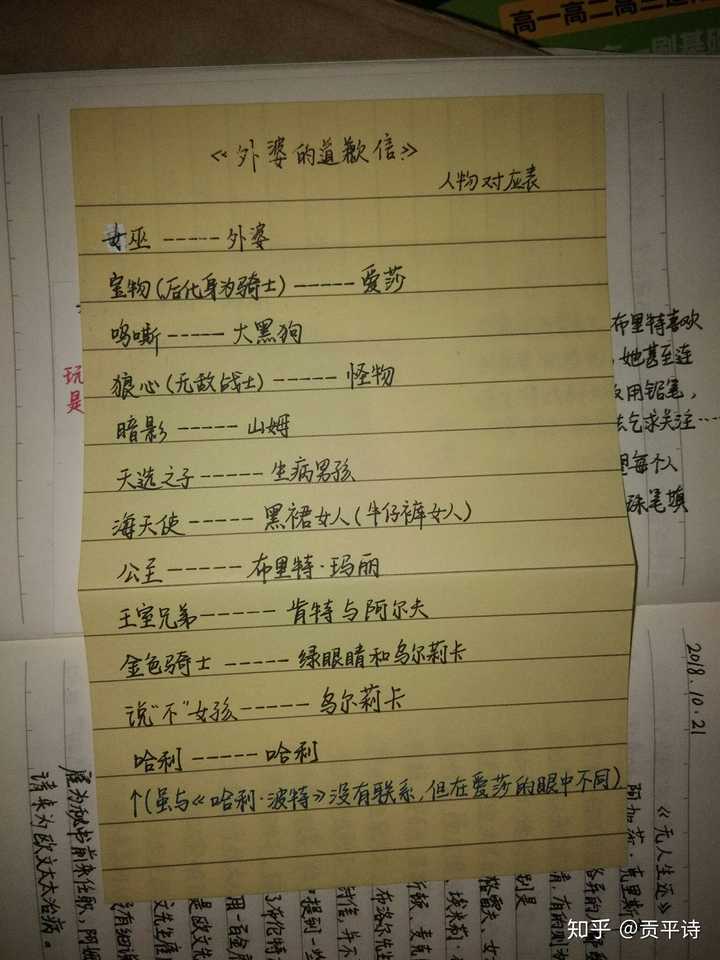 高一高二高三
《外婆的道歉信》
人物对应表
女巫-----外婆
宝物(后化身为骑士)-----爱莎
呜嘶-----大黑狗
狼心(无敌战士)-----怪物
暗影-----山姆
天选之子-----生病男孩
海天使-----黑裙女人(牛仔裤女人)
公主-----布里特·玛丽
王室兄弟-----肯特与阿尔夫
金色骑士-----绿眼睛和乌尔莉卡
说“不”女孩-----乌尔莉卡
哈利-----哈利
↑(虽与《哈利·波特》没有联系,但在爱莎的眼中不同)
玩
是
布里特喜欢
,她甚至连
用铅笔,
乞求关注……
每个人
珠笔填
2018.10.21
《无人生还》
阿加莎·克里斯
应为秘书前来任职,阿姆
请来为欧文太太治病。
知乎 @贡平诗